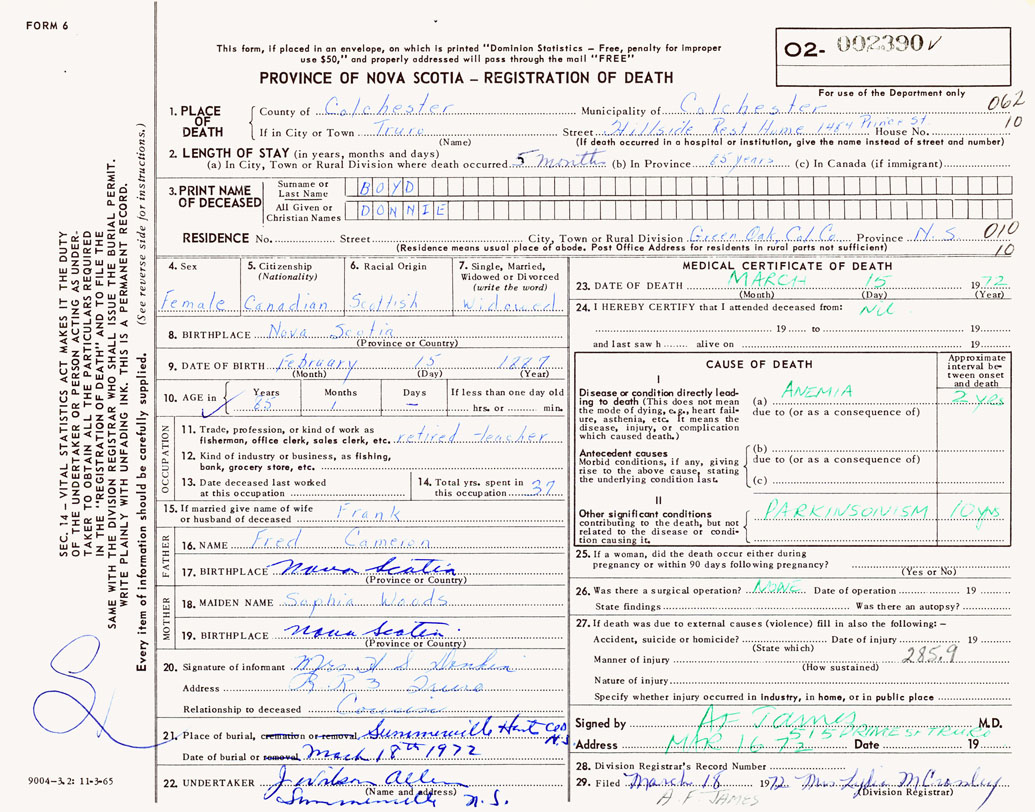 FORM 6
This form, if placed in an envelope, on which is printed "Dominion Statistics – Free, penalty for improper
use $50," and properly addressed will pass through the mail "FREE"
PROVINCE OF NOVA SCOTIA – REGISTRATION OF DEATH
O2- 002390
For use of the Department only
062
10
1. PLACE OF DEATH
County of Colchester Municipality of Colchester
If in City or Town Truro Street Hillside Rest Home 1484 Prince St House No.
(Name) (If death occurred in a hospital or institution, give the name instead of street and number)
2. LENGTH OF STAY (in years, months and days)
(a) In City, Town or Rural Division where death occurred 5 month (b) In Province 85 years (c) In Canada (if immigrant)
3. PRINT NAME OF DECEASED
Surname or Last Name BOYD
All Given or Christian Names DONNIE
RESIDENCE No. Street City, Town or Rural Division Green Oak, Col Co. Province N.S 010
(Residence means usual place of abode. Post Office Address for residents in rural parts not sufficient) 10
4. Sex Female
5. Citizenship (Nationality) Canadian
6. Racial Origin Scottish
7. Single, Married, Widowed or Divorced (write the word) Widowed
8. BIRTHPLACE Nova Scotia
(Province or Country)
9. DATE OF BIRTH February 15 1887
(Month) (Day) (Year)
10. AGE in Years 85 Months 1 Days – If less than one day old
hrs. or min.
OCCUPATION
11. Trade, profession, or kind of work as
fisherman, office clerk, sales clerk, etc. retired teacher
12. Kind of industry or business, as fishing,
bank, grocery store, etc.
13. Date deceased last worked
at this occupation
14. Total yrs. spent in
this occupation 37
15. If married give name of wife
or husband of deceased Frank
FATHER
16. NAME Fred Cameron
17. BIRTHPLACE Nova Scotia
(Province or Country)
MOTHER
18. MAIDEN NAME Sophia Woods
19. BIRTHPLACE Nova Scotia
(Province or Country)
20. Signature of informant Mrs H S
Address R R 3 Truro
Relationship to deceased
21. Place of burial, cremation or removal, Summerville Hants Co. N.S.
Date of burial or removal Mach 18th 1972
22. UNDERTAKER J Wilson Allen
(Name and address)
Summerville N.S.
MEDICAL CERTIFICATE OF DEATH
23. DATE OF DEATH MARCH 15 1972
(Month) (Day) (Year)
24. I HEREBY CERTIFY that I attended deceased from: Nil
19 to 19
and last saw h alive on 19
CAUSE OF DEATH
Approximate interval between onset and death
I
Disease or condition directly leading to death (This does not mean the mode of dying, e.g., heart failure, asthenia, etc. It means the disease, injury, or complication which caused death.)
(a) ANEMIA 2 yrs
due to (or as a consequence of)
Antecedent causes
Morbid conditions, if any, giving rise to the above cause, stating the underlying condition last.
(b)
due to (or as a consequence of)
(c)
II
Other significant conditions
contributing to the death, but not related to the disease or condition causing it.
PARKINSONISM 10 yrs
25. If a woman, did the death occur either during
pregnancy or within 90 days following pregnancy?
(Yes or No)
26. Was there a surgical operation? NONE Date of operation 19
State findings Was there an autopsy?
27. If death was due to external causes (violence) fill in also the following: –
Accident, suicide or homicide? Date of injury 19
(State which)
285.9
Manner of injury
(How sustained)
Nature of injury
Specify whether injury occurred in industry, in home, or in public place
Signed by A F James M.D.
515 PRINCE ST TRURO
Address MAR 16 72 Date 19
28. Division Registrar's Record Number
29. Filed March 18 1972 Mrs. Lydia McCrossley
(Division Registrar)
A F JAMES
SEC. 14 – VITAL STATISTICS ACT MAKES IT THE DUTY
OF THE UNDERTAKER OR PERSON ACTING AS UNDER-
TAKER TO OBTAIN ALL THE PARTICULARS REQUIRED
IN THE "REGISTRATION OF DEATH" AND TO FILE THE
SAME WITH THE DIVISION REGISTRAR WHO SHALL ISSUE THE BURIAL PERMIT.
WRITE PLAINLY WITH UNFADING INK. THIS IS A PERMANENT RECORD.
Every item of information should be carefully supplied. (See reverse side for instructions.)
9004-3.2: 11-3-65